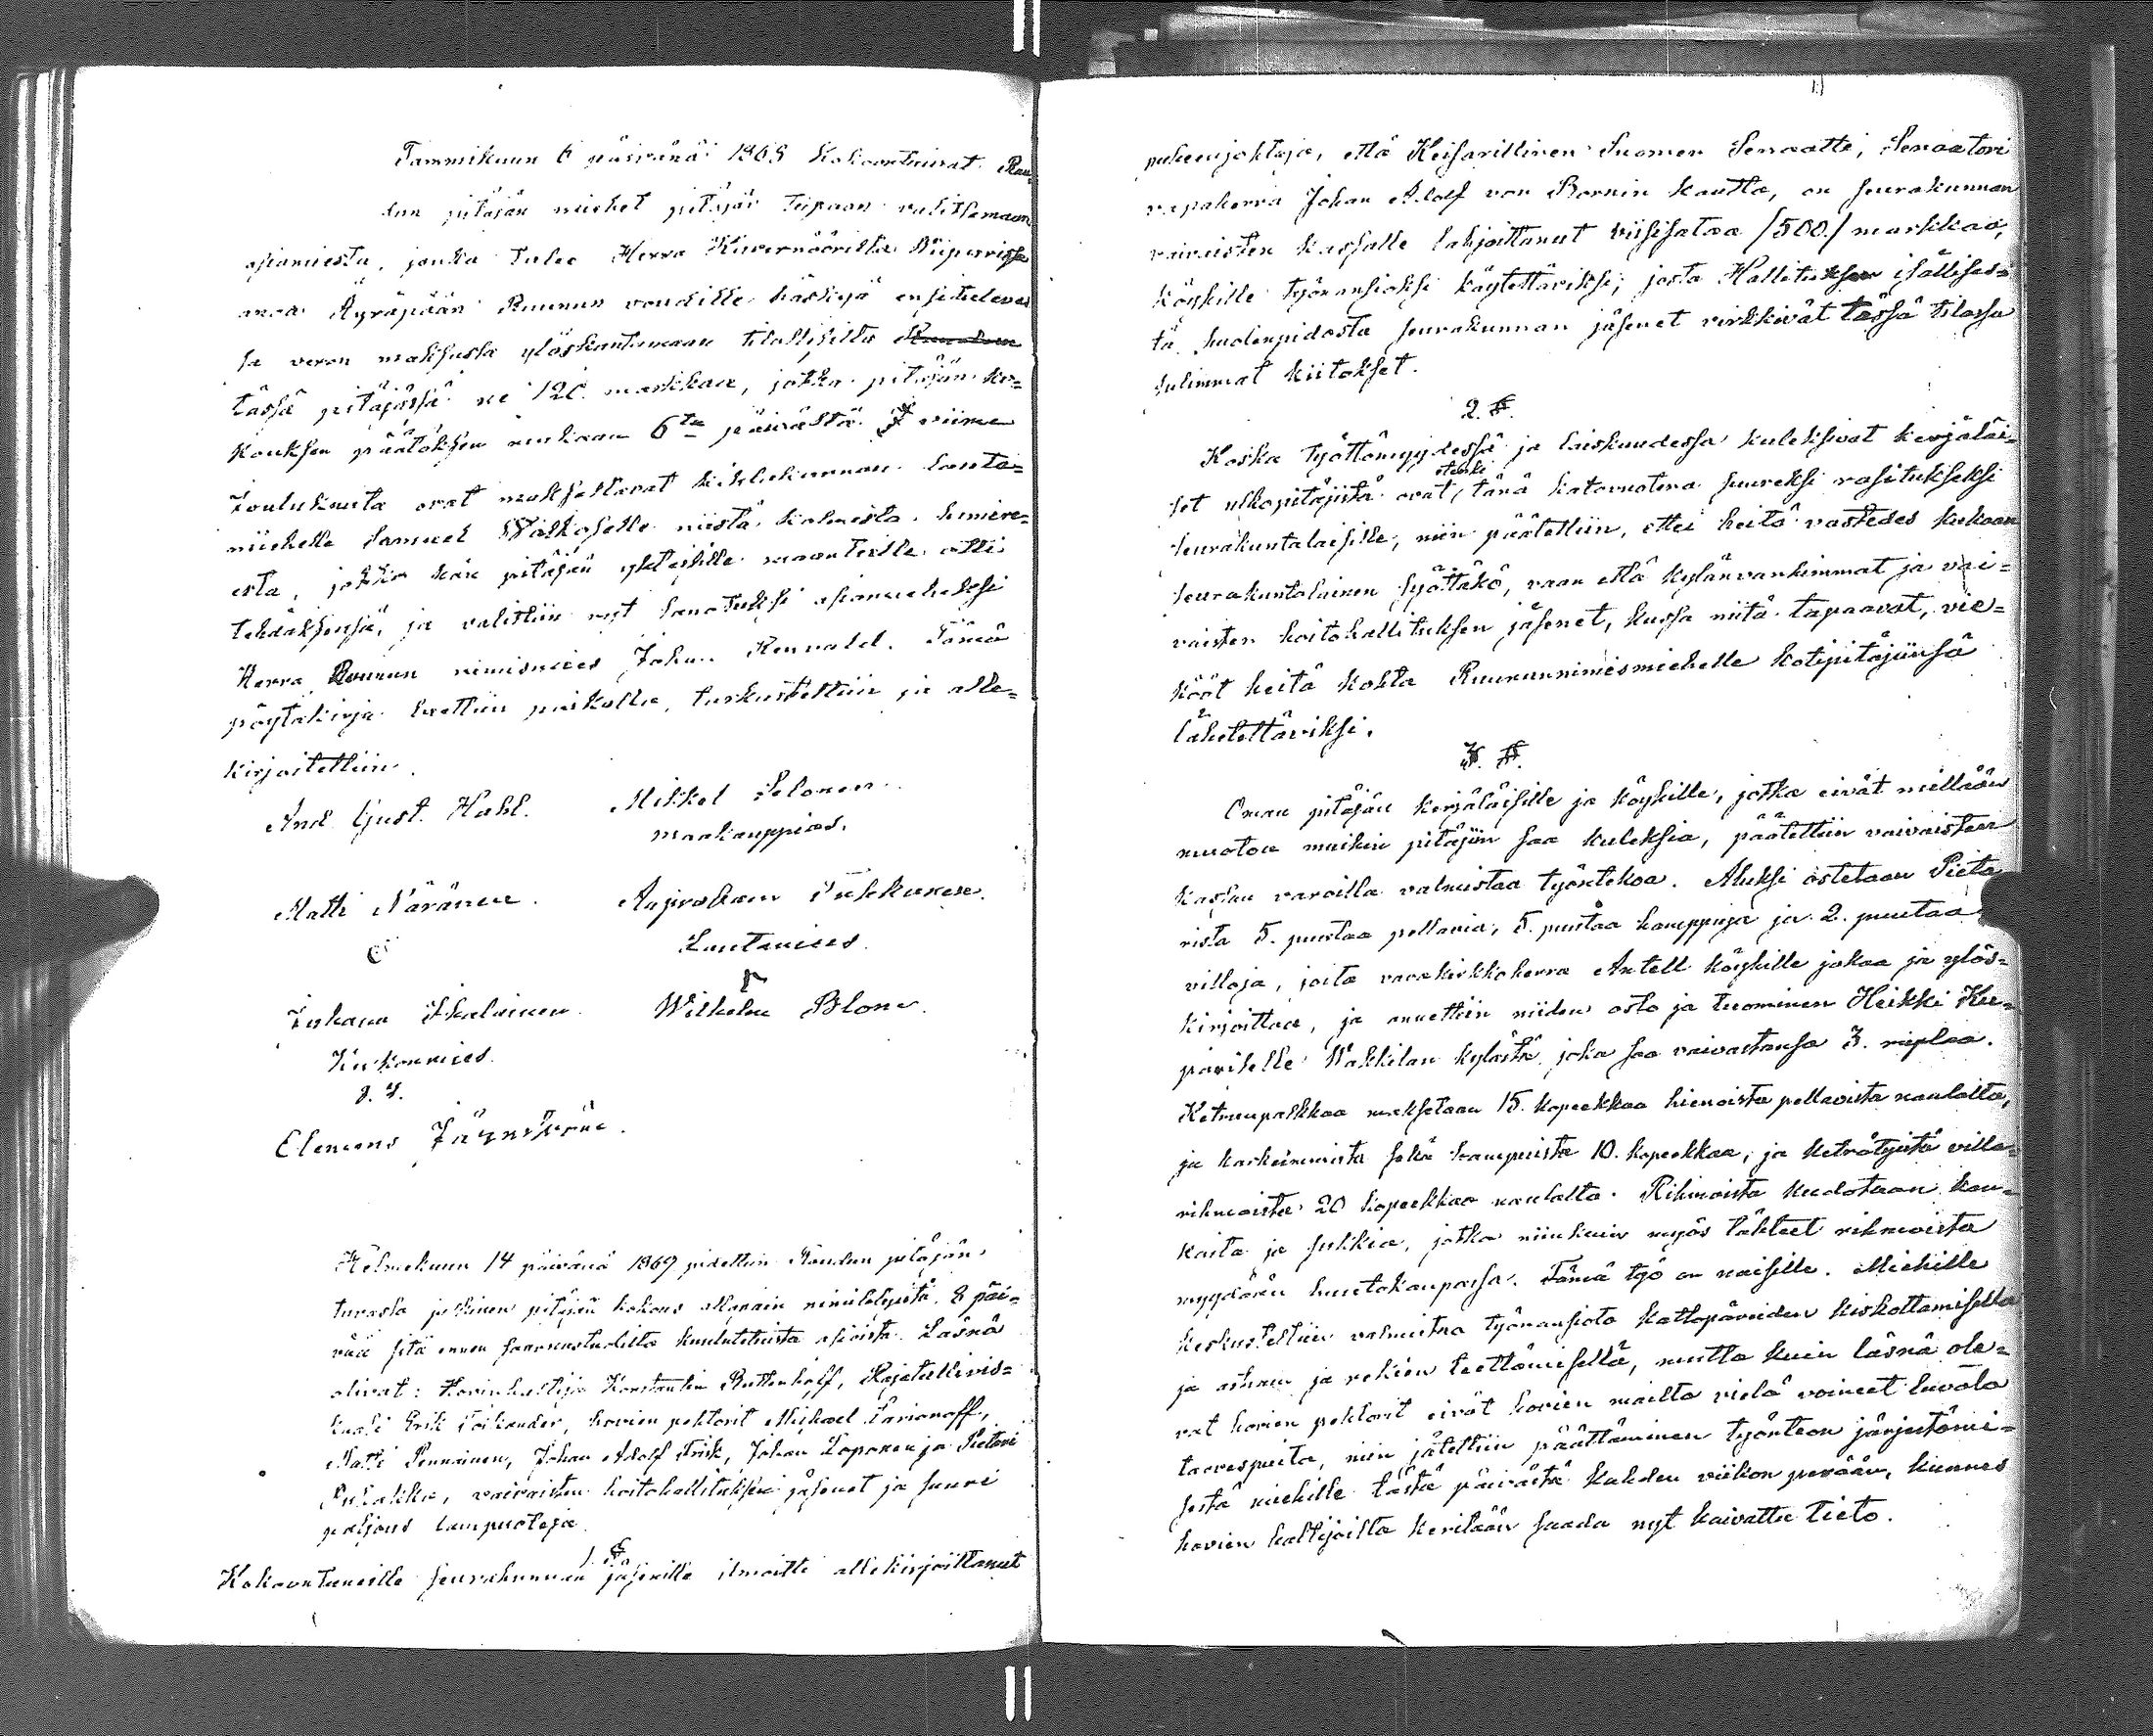 Tammikuun 6 päivänä 1869 kokoontuivat Rau-
dun pitäjän miehet pitäjän tupaan valitsemaan
asiamiestä, jonka tulee Herra Kuvernööriltä Wiipurissa
anoa Äyräpään Ruunun voudille käskyä ensitulevas
sa veron maksussa ylöskantamaan tilallisilta
tässä pitäjässä ne 120 markkaa, jotka pitäjän ko-
kouksen päätöksen mukaan 6ta päivästä viime
Joulukuuta ovat maksettavat kihlakunnan lauta-
miehelle Samuel Walkoselle niistä kolmesta
esta, jotka hän pitäjän yhteisille maanteille otti
tehdäksensä, ja valittiin nyt sanotuksi asiamieheksi
Herra Ruunun nimismies Johan Renvald. Tämä
pöytäkirja luettiin paikalla, tarkustettiin ja alle-
kirjoitettiin.
And Gust. Hahl. Mikkel Selonen
maakauppias.
Matti Näränen. Aapraham Puhkunen.
Lautamies.
Juhana Ikalainen Wilhelm Blom.
Kirkonmies.
Clemens Jäynskäne.
Helmikuun 14 päivänä 1869 pidettiin Raudun pitäjän
tuvasta julkinen pitäjän kokous allamain nimitetyistä, 8 päi-
vää sitä ennen saarnastuolilta kuulutetuista asioista. Läsnä
olivat: Hovinhaltija Konstantin Ruttenholf, Rajatullivis-
kaali Erik Toikander, hovien pehtorit Michael Larionoff,
Matti Pennainen, Johan Adolf Frik, Johan Loponen ja Pietari
Puhakka, vaivaisten hoitohallituksen jäsenet ja suuri
paljous lampuoteja.
1. §.
Kokoontuneille seurakunnan jäsenille ilmoitti allekirjoittanut
puheenjohtaja, että Keisarillinen Suomen Senaatti, Senaatori
vapaherra Johan Adolf von Bornin kautta, on seurakunnan
vaivaisten kassalle lahjoittanut viisisataa /500./ markkaa,
köyhille työnansioksi käytettäväksi; josta Hallituksen isällises-
tä huolenpidosta seurakunnan jäsenet virkkivät tässä tilassa
sulimmat kiitokset.
2. §.
Koska työttömyydessä ja laiskuudessa kuleksivat kerjäläi-
set ulkopitäjistä ovat tänä katovuotena suureksi rasitukseksi
seurakuntalaisille, niin päätettiin, ettei heitä vastedes kukaan
seurakuntalainen syöttäkö, vaan että kylänvanhimmat ja vai-
vaisten hoitohallituksen jäsenet, kussa niitä tapaavat, vie-
kööt heitä kohta Ruununnimismiehelle kotipitäjiinsä
lähetettäviksi.
3. §.
Oman pitäjän kerjäläisille ja köyhille, jotka eivät millään
muotoa muihin pitäjiin saa kuleksia, päätettiin vaivaisten
kassan varoilla valmistaa työntekoa. Aluksi ostetaan Pieta
rista 5. puutaa pellavia, 5. puutaa hamppuja ja 2. puutaa
villoja, joita varakirkkoherra Antell köyhille jakaa ja ylös-
kirjoittaa, ja annettiin niiden osto ja tuominen Heikki Ku-
pariselle Wakkilan kylästä, joka saa vaivastansa 3. ruplaa.
Ketruupalkkaa maksetaan 15. kopeekkaa hienoista pellavista naulalta,
ja karkeimmista sekä hampuista 10. kopeekkaa, ja keträtyistä villa-
rihmoista 20 kopeekkaa naulalta. Rihmoista kudotaan kan-
kaita ja sukkia, jotka niinkuin myös tähteet rihmoista
myydään huutokaupassa. Tämä työ on naisille. Miehille
keskusteltiin valmistaa työnansiota kattopäreiden kiskottamisella
ja astiain ja rekien teettämisellä, mutta kuin läsnä ole-
vat hovien pehtorit eivät hovien mailta vielä voineet luvata
tarvespuita, niin jätettiin päättäminen työnteon järjestämi-
sestä miehille tästä päivästä kahden viikon perään, kunnes
hovien haltijoilta keritään saada nyt kaivattu tieto.